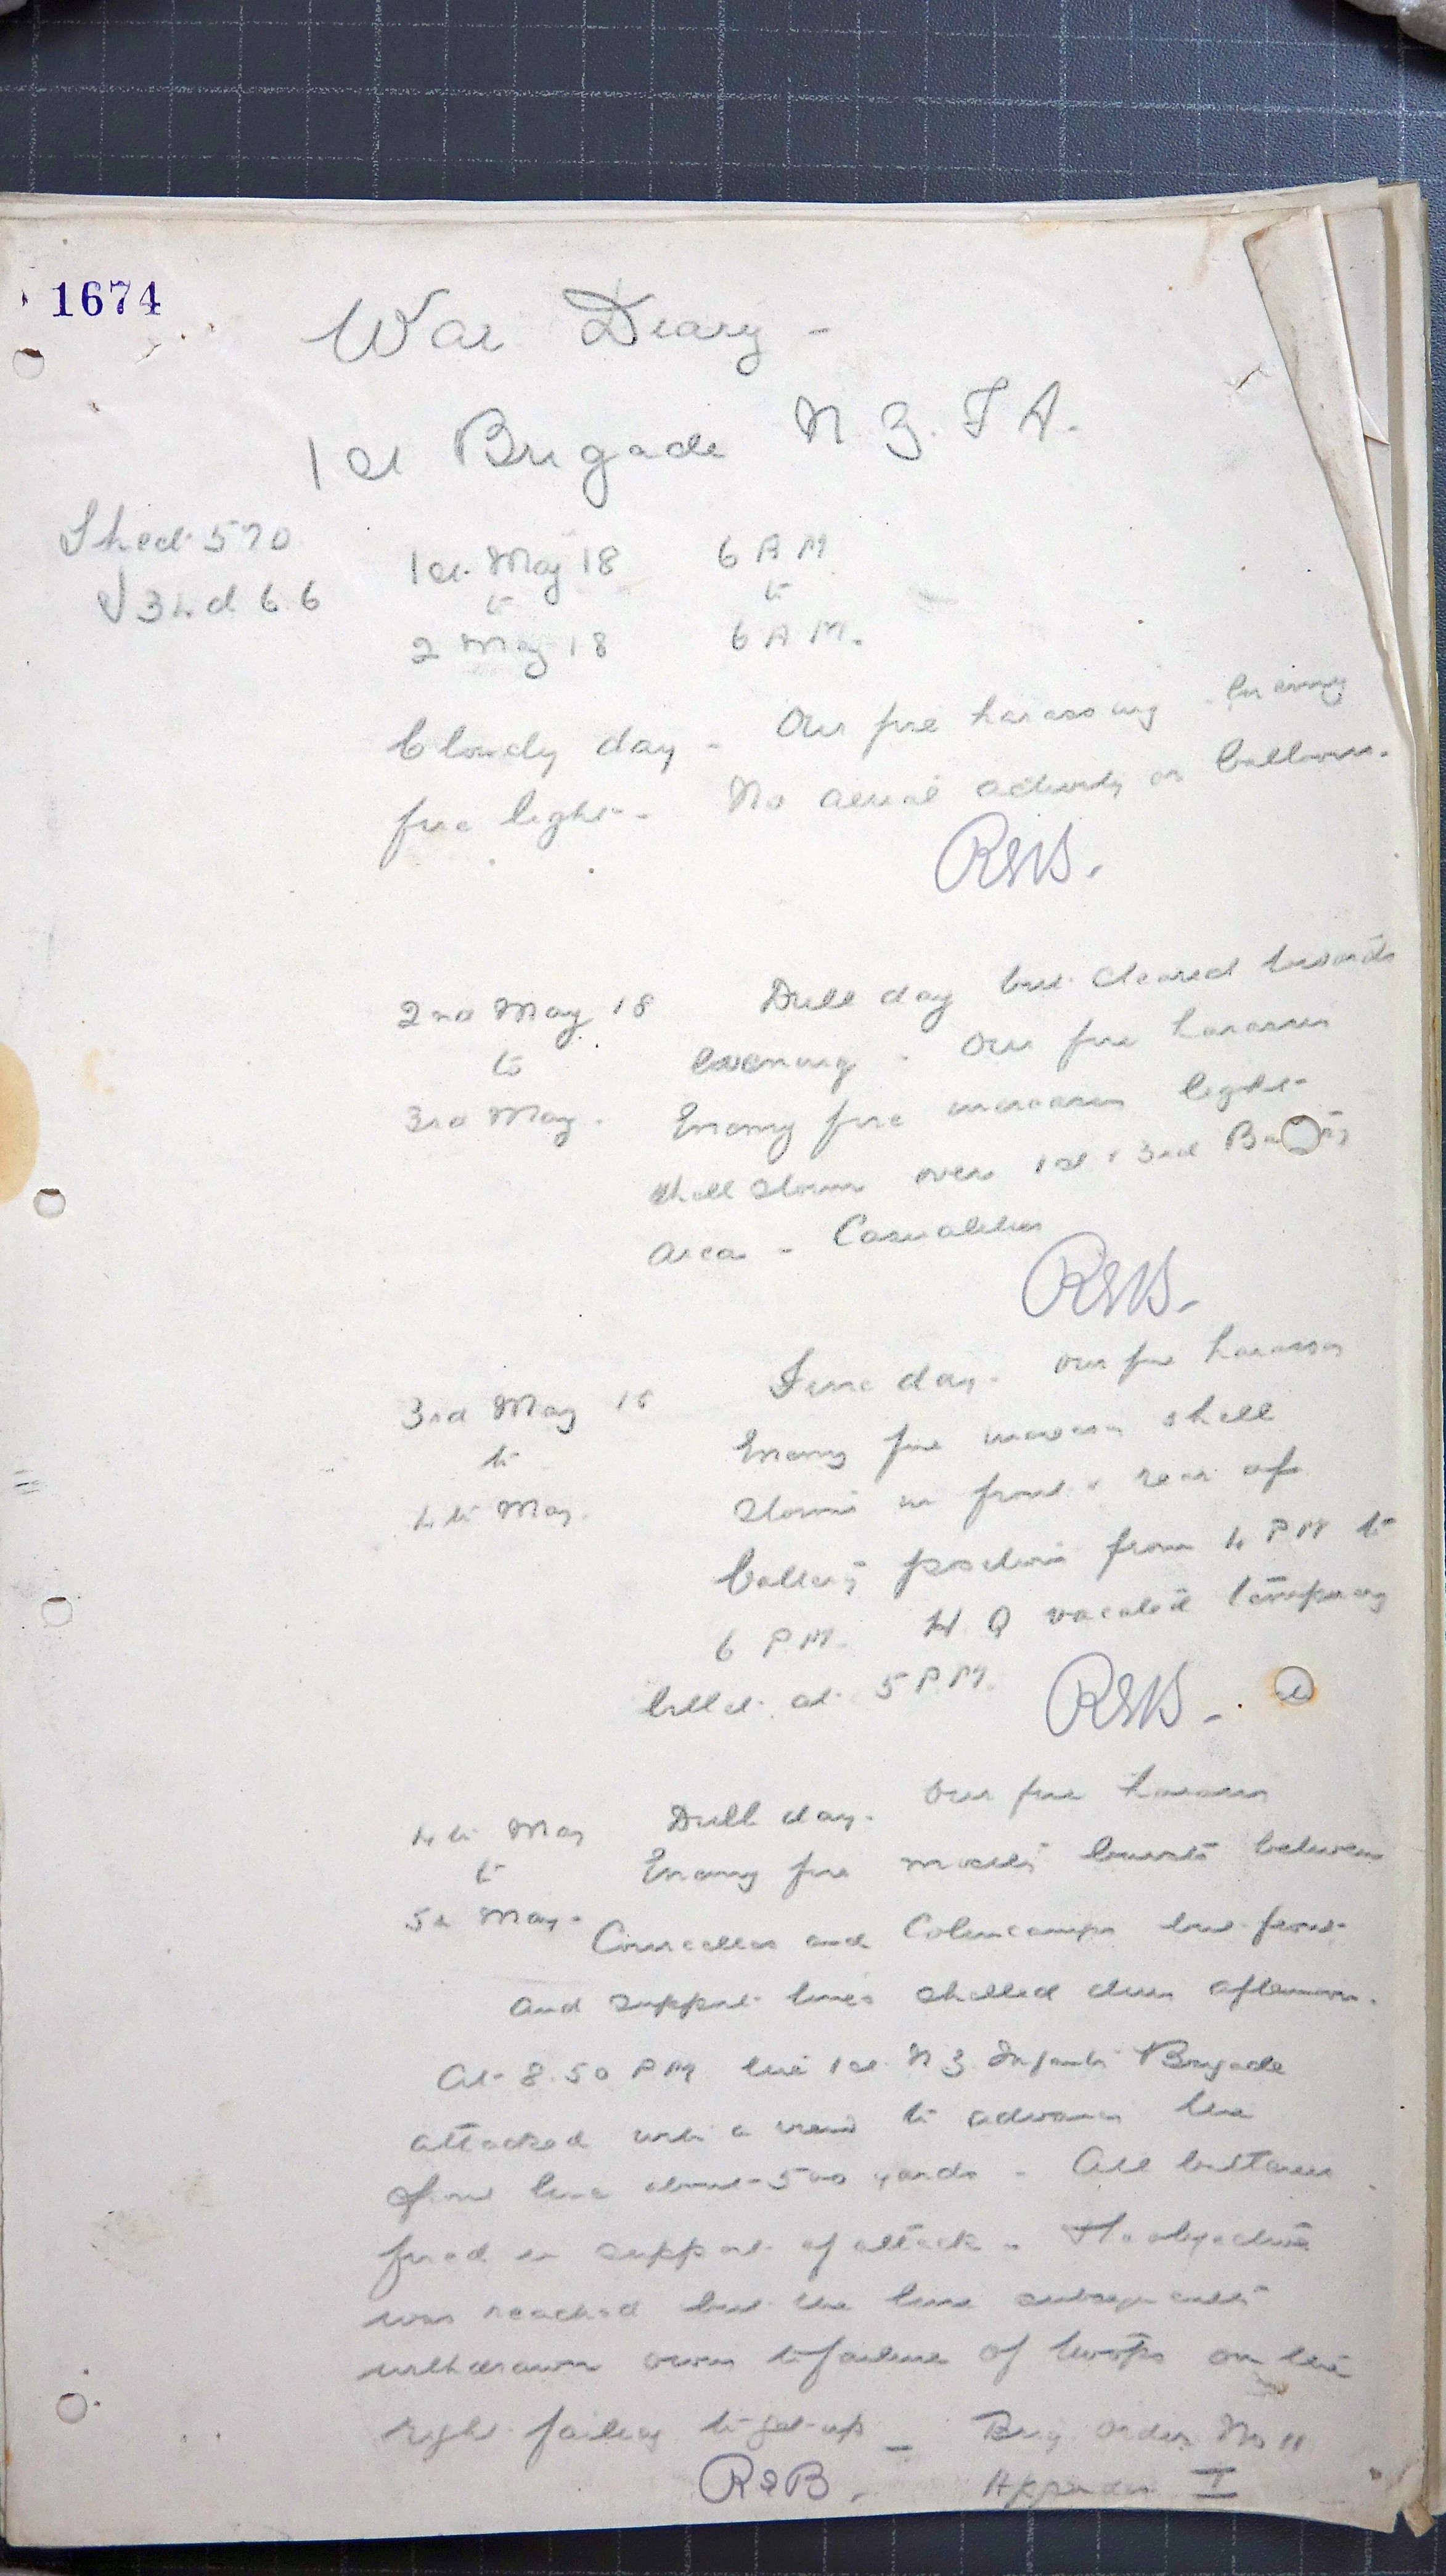 1674
War Diary -
1st Brigade N. Z. F A.
Sheet 570
J 34 d 6 6
1st May 18 6 AM
to to
2 May 18 6 AM.
Cloudy day - Our fire harassing. Enemy
fire light - No aerial activity or balloons.
RSB.
2nd May 18 Dull day but cleared towards
to evening - Our fire harassing
3rd May. Enemy fire increases light
shell storms over 1st & 3rd Battery
area - Casualties
RSB.
3rd May 18 Fine day. Our fire harassing
to Enemy fire increases shell
4th May. storms in front & rear of
battery positions from 4 PM to
6 PM. H Q vacated temporary
billet at 5 PM.
RSB.
4th May Dull day. Our fire harassing
to Enemy fire mostly bursts between
5th May. Courcelles and Colincamps but front
and support lines shelled during afternoon.
At 8.50 PM the 1st N Z Infantry Brigade
attacked with a view to advance the
front line about 500 yards - All batteries
fired in support of attack - The objective
was reached but the line subsequently
withdrawn owing to failure of troops on the
right failing to get up - Brig. Order No 11
RSB. Appendix I